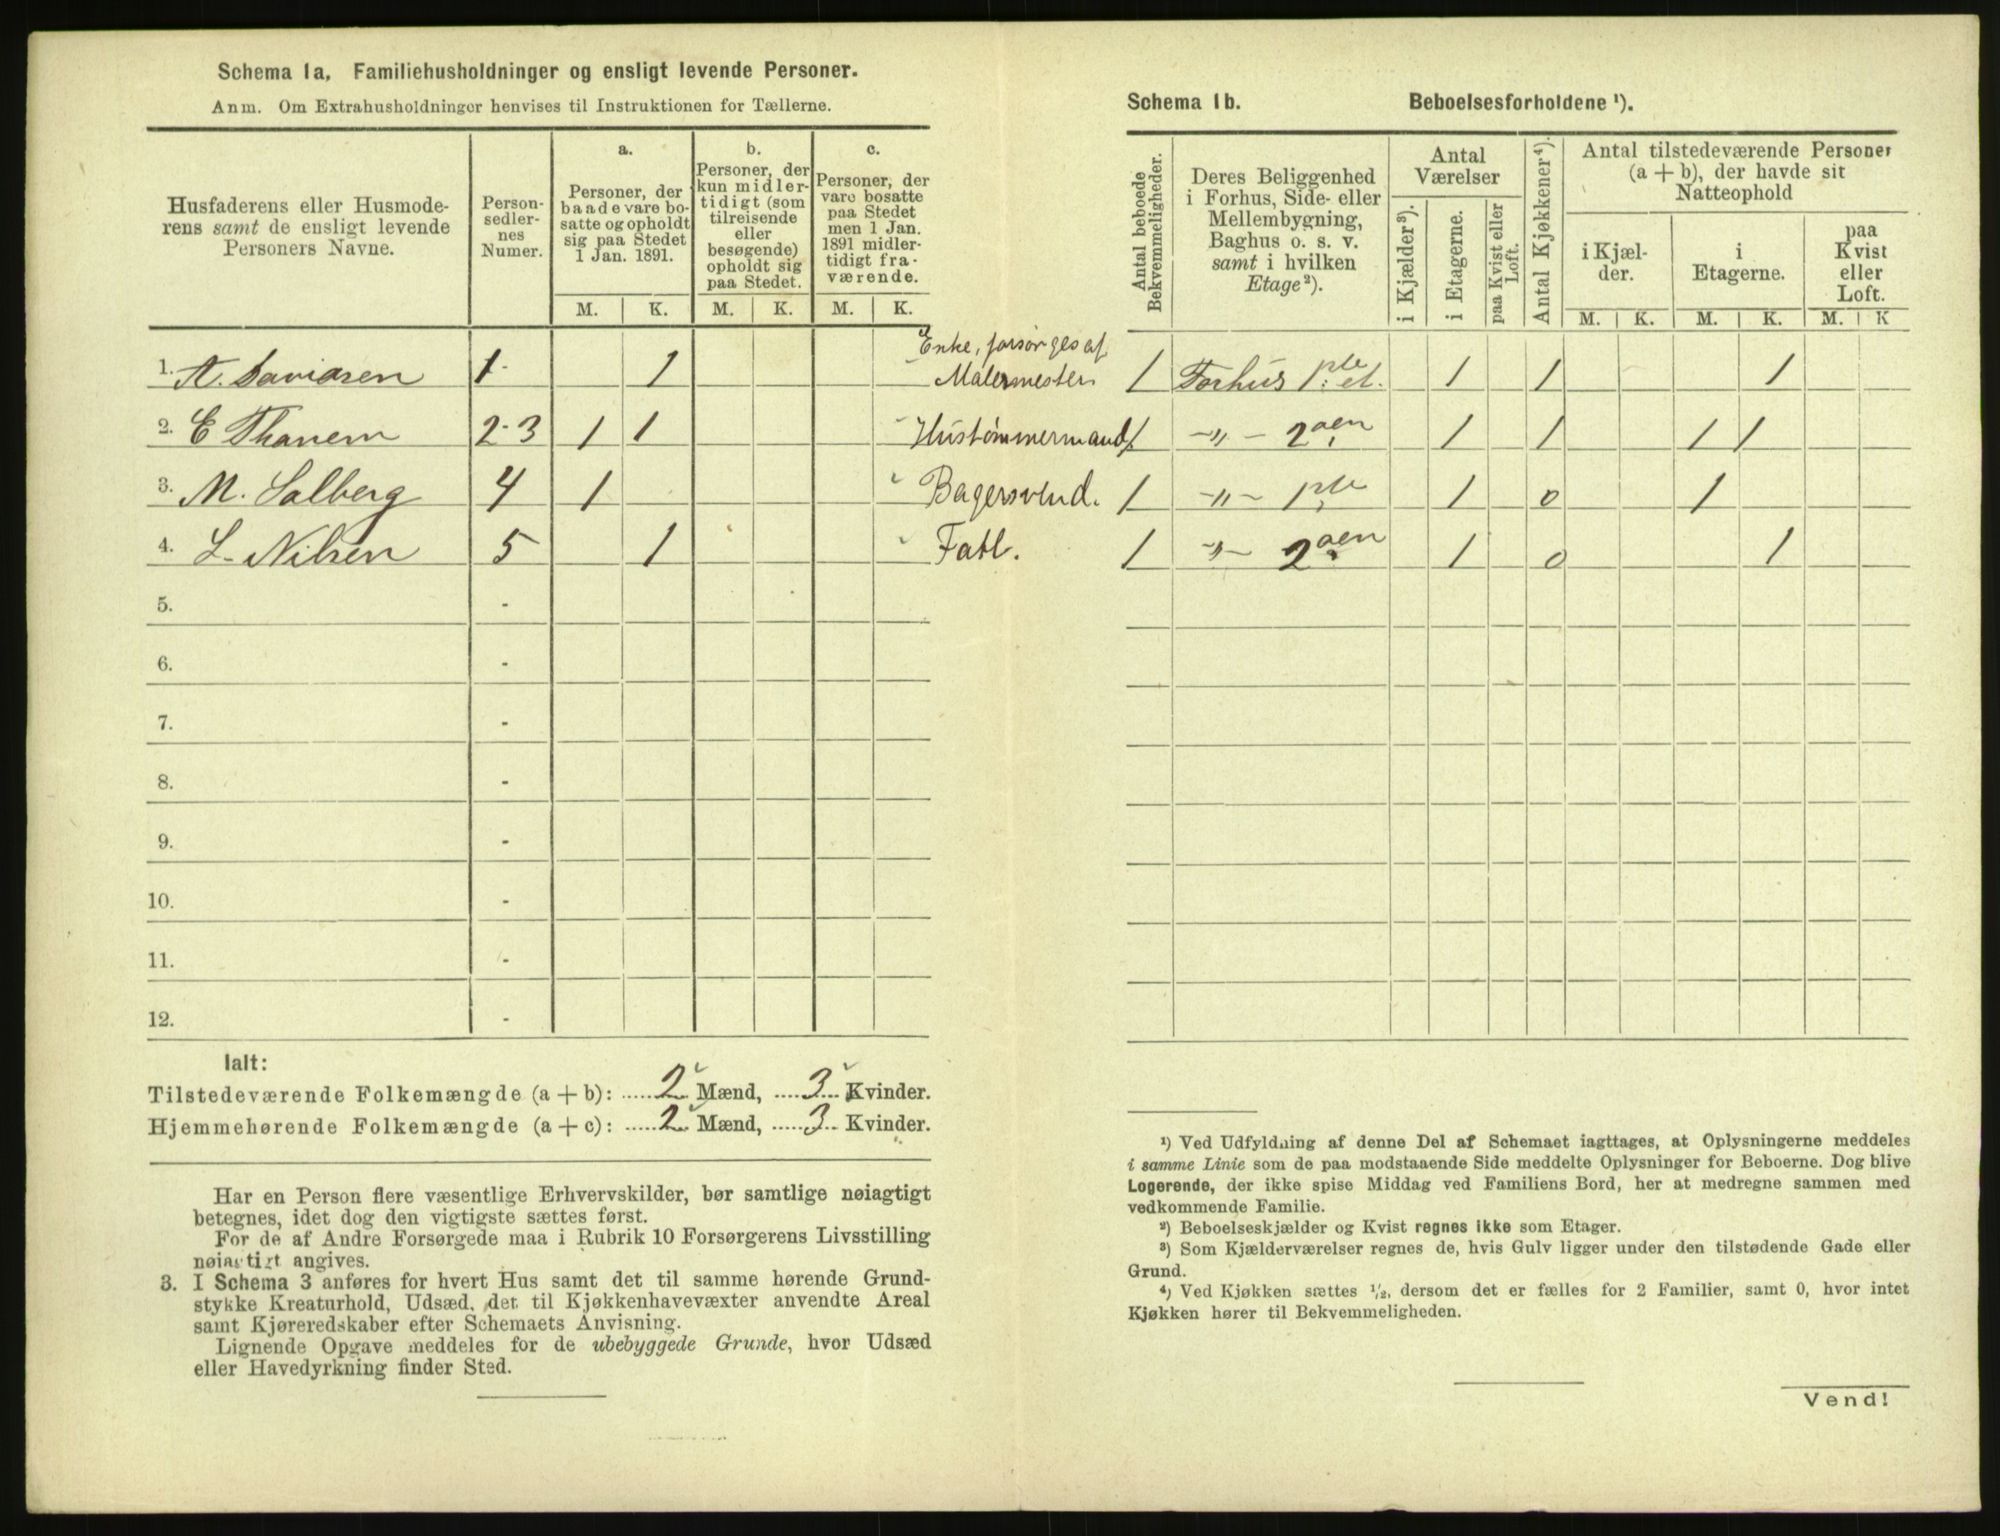 Schema 1a. Familiehusholdninger og ensligt levende Personer.
Anm. Om Extrahusholdninger henvises til Instruktionen for Tællerne.
Husfaderens eller Husmode-
rens samt de ensligt levende
Personers Navne.
Person-
sedler-
nes
Numer.
a.
Personer, der
baade vare bo-
satte og opholdt
sig paa Stedet
1 Jan. 1891.
b.
Personer, der
kun midler-
tidigt (som
tilreisende
eller
besøgende)
opholdt sig
paa Stedet.
c.
Personer, der
vare bosatte
paa Stedet
men 1 Jan.
1891 midler-
tidigt fra-
værende.
M. K. M. K. M. K.
1. A. Davidsen 1- 1 Enke, forsørges af
Malermester
2. E Thanem 2-3 1 1 Hustømmermand
3. M. Salberg 4 1 Bagersvend.
4. L. Nilsen 5 1 Fatl.
5. -
6. -
7. -
8. -
9. -
10. -
11. -
12. -
Ialt:
Tilstedeværende Folkemængde (a + b): 2 Mænd, 3 Kvinder.
Hjemmehørende Folkemængde (a + c): 2 Mænd, 3 Kvinder.
Har en Person flere væsentlige Erhvervskilder, bør samtlige nøiagtigt
betegnes, idet dog den vigtigste sættes først.
For de af Andre Forsørgede maa i Rubrik 10 Forsørgerens Livsstilling
nøiagtigt angives.
3. I Schema 3 anføres for hvert Hus samt det til samme hørende Grund-
stykke Kreaturhold, Udsæd, det til Kjøkkenhavevæxter anvendte Areal
samt Kjøreredskaber efter Schemaets Anvisning.
Lignende Opgave meddeles for de ubebyggede Grunde, hvor Udsæd
eller Havedyrkning finder Sted.
Schema 1b. Beboelsesforholdene ¹).
Antal beboede
Bekvemmeligheder.
Deres Beliggenhed
i Forhus, Side- eller
Mellembygning,
Baghus o. s. v.
samt i hvilken
Etage²).
Antal
Værelser
i Kjælder³).
i Etagerne.
paa Kvist eller
Loft.
Antal Kjøkkener⁴).
Antal tilstedeværende Personer
(a + b), der havde sit
Natteophold
i Kjæl-
der.
i
Etagerne.
paa
Kvist
eller
Loft.
M. K. M. K. M. K
1 Forhus 1ste et. 1 1 1
1 -„- 2den 1 1 1 1
1 -„- 1ste 1 0 1
1 -„- 2den 1 0 1
¹) Ved Udfyldning af denne Del af Schemaet iagttages, at Oplysningerne meddeles
i samme Linie som de paa modstaaende Side meddelte Oplysninger for Beboerne. Dog blive
Logerende, der ikke spise Middag ved Familiens Bord, her at medregne sammen med
vedkommende Familie.
²) Beboelseskjælder og Kvist regnes ikke som Etager.
³) Som Kjælderværelser regnes de, hvis Gulv ligger under den tilstødende Gade eller
Grund.
⁴) Ved Kjøkken sættes ½, dersom det er fælles for 2 Familier, samt 0, hvor intet
Kjøkken hører til Bekvemmeligheden.
Vend!